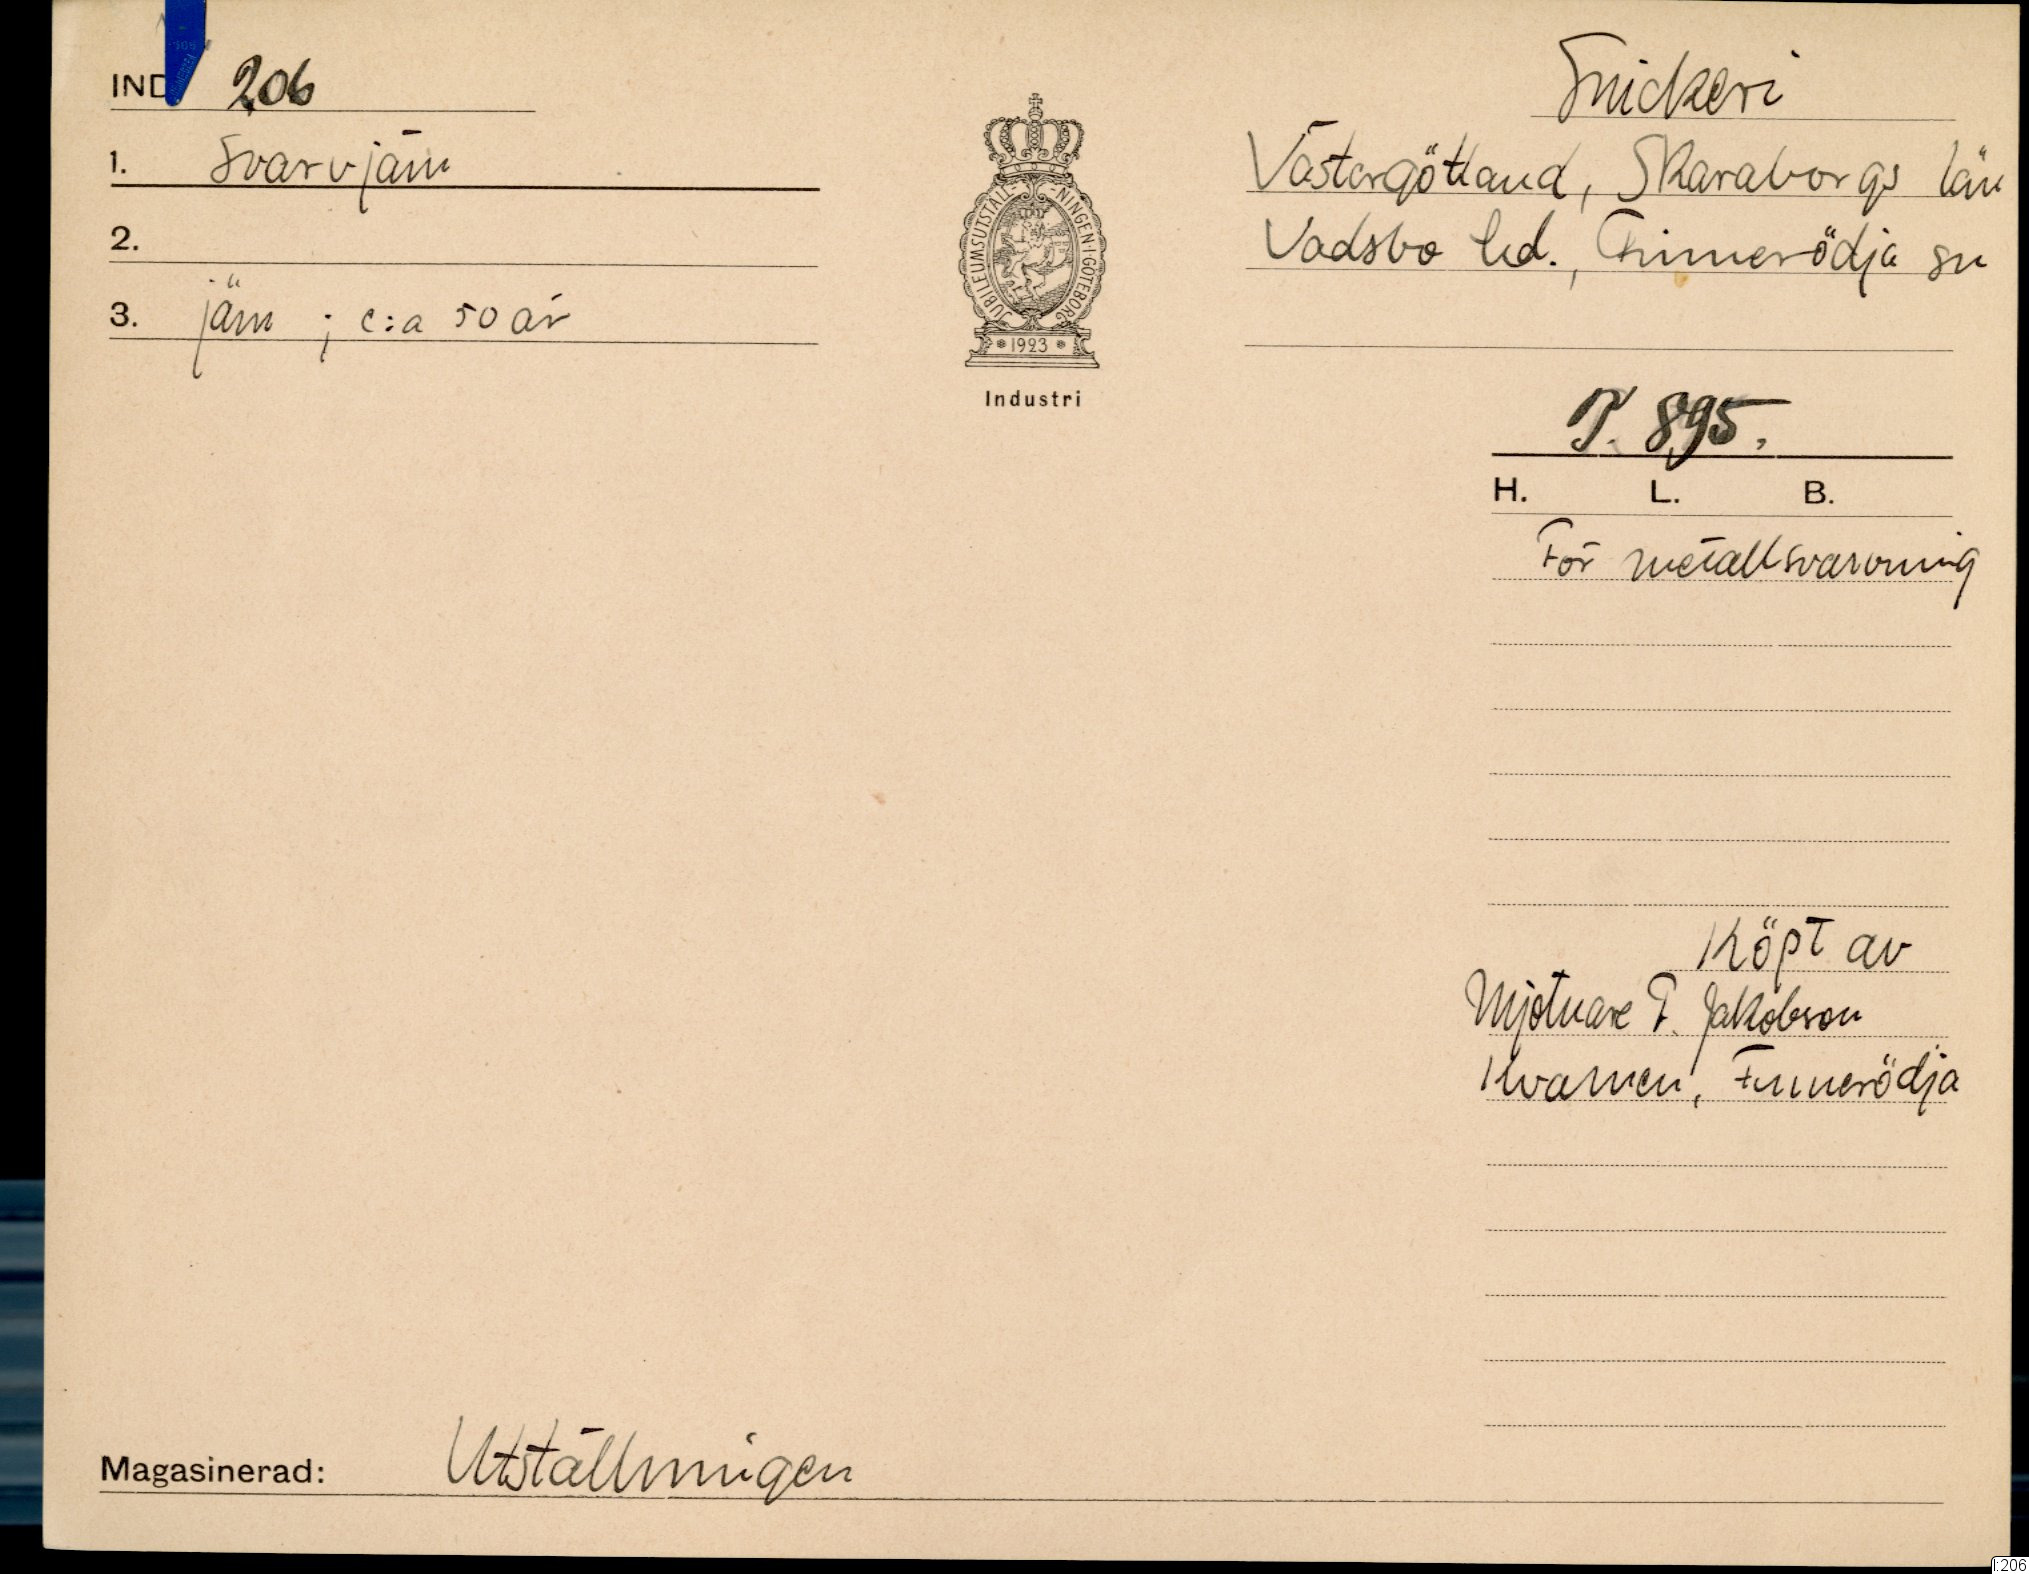 IND 206
1. Svarvjärn
2.
3. järn ; c:a 50 år
JUBILEUMSUTSTÄLL-NINGEN·I·GÖTEBORG
1923
Industri
Snickeri
Västergötland, Skaraborgs län
Vadsbo hd., Finnerödja sn
T. 895.
H. L. B.
För metallsvarvning
Köpt av
Mjölnare F. Jakobson
Kvarnen, Finnerödja
Magasinerad: Utställningen
I:206